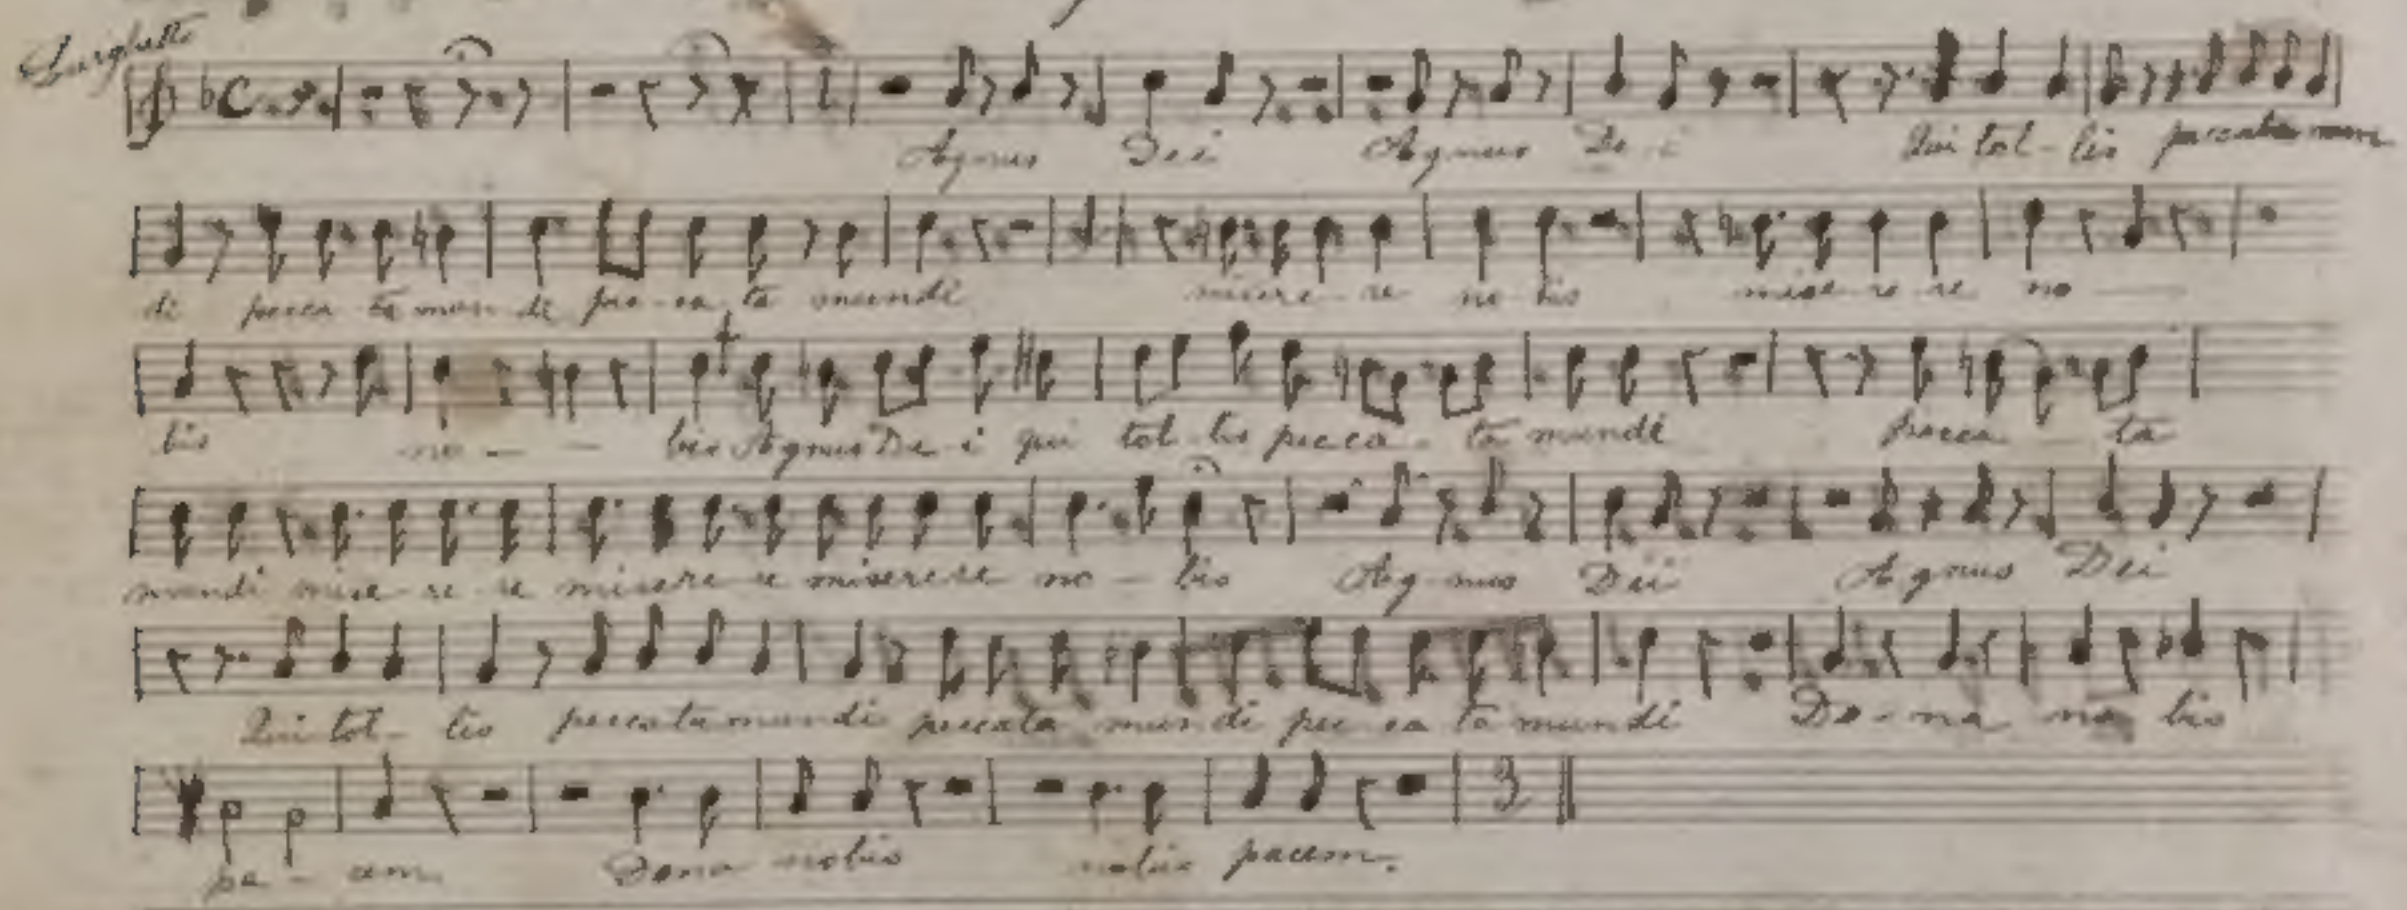 Larghetto
Agnus Dei Agnus De-i Qui tol-lis peccata mun
di pecca ta mun-di pec-ca-ta mundi misere-re no-bis mise-re-re no-
bis no-- bis Agnus De-i qui tol-lis pecca-ta mundi pecca-ta
mundi mise-re-re misere-re miserere no-bis Ag-nus Dei Agnus Dei
Qui tol-lis peccata mundi peccata mundi pec-ca ta mundi Do-na no bis
pa-cem Dona nobis nobis pacem.